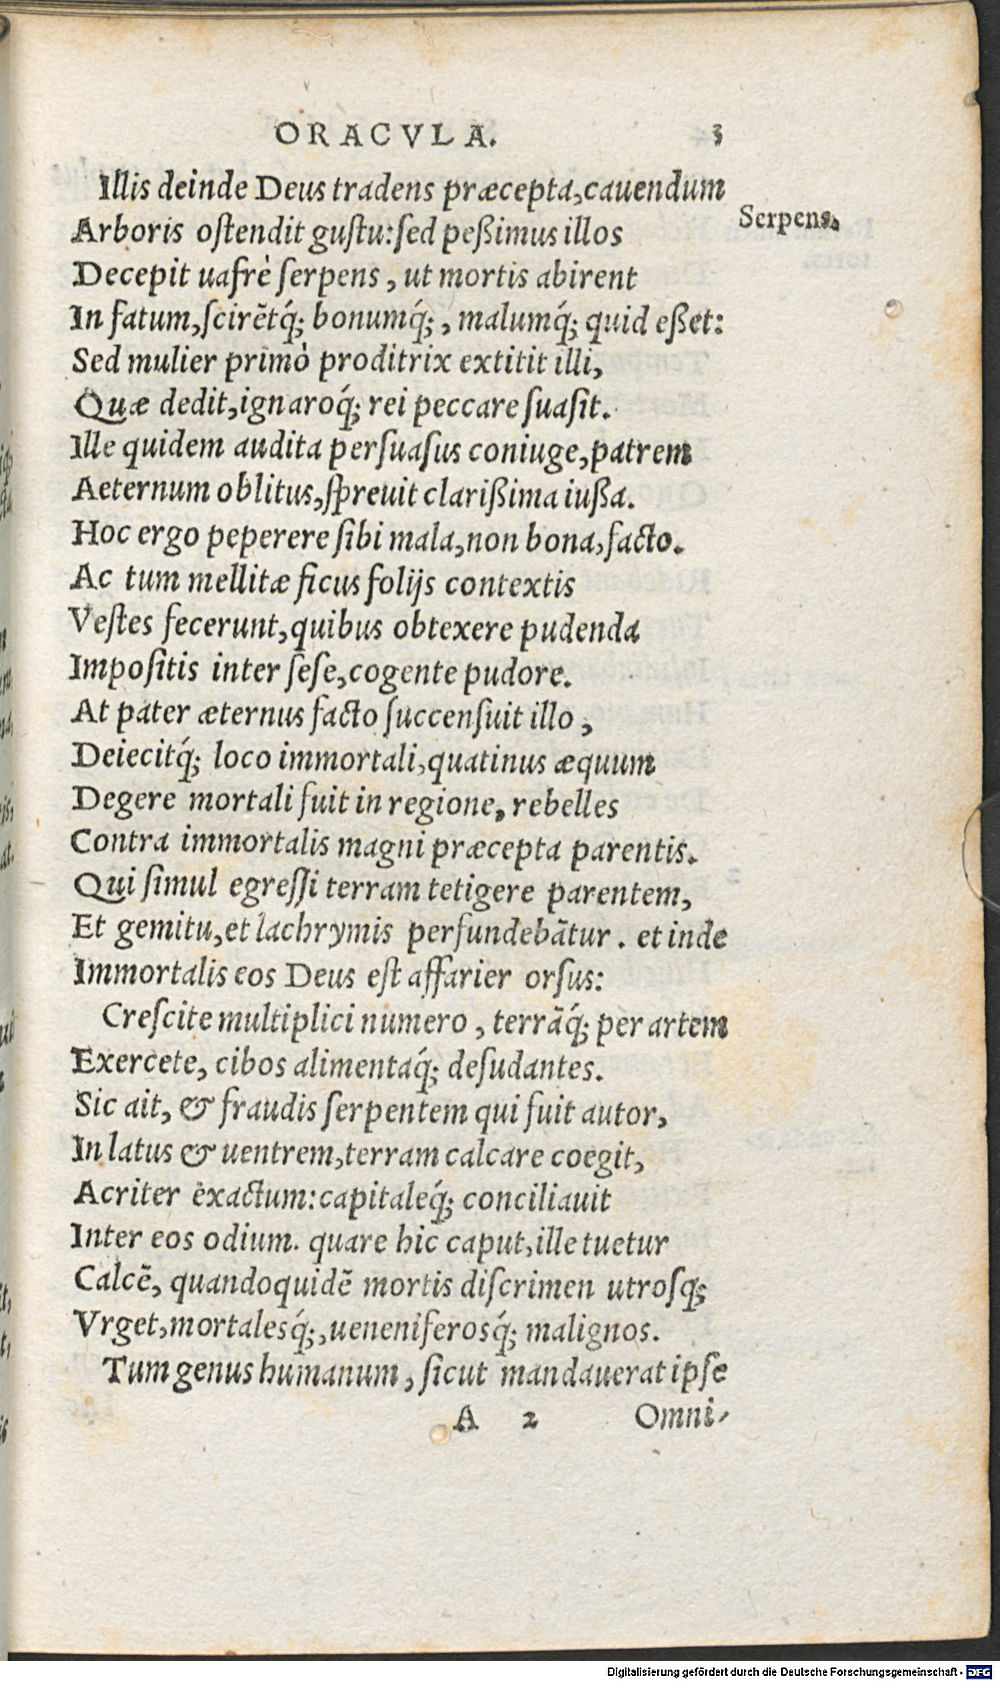 ORACVLA. 3
Illis deinde Deus tradens præcepta, cauendum
Serpens.
Arboris ostendit gustu: sed peßimus illos
Decepit uafrè serpens, ut mortis abirent
In fatum, scirẽtq́; bonumq́;, malumq́; quid eßet:
Sed mulier primò proditrix extitit illi,
Quæ dedit, ignaroq́; rei peccare suasit.
Ille quidem audita persuasus coniuge, patrem
Aeternum oblitus, spreuit clarißima iußa.
Hoc ergo peperere sibi mala, non bona, facto.
Ac tum mellitæ ficus folijs contextis
Vestes fecerunt, quibus obtexere pudenda
Impositis inter sese, cogente pudore.
At pater æternus facto succensuit illo,
Deiecitq́; loco immortali, quatinus æquum
Degere mortali fuit in regione, rebelles
Contra immortalis magni præcepta parentis.
Qui simul egressi terram tetigere parentem,
Et gemitu, et lachrymis perfundebãtur. et inde
Immortalis eos Deus est affarier orsus:
Crescite multiplici numero, terrãq́; per artem
Exercete, cibos alimentaq́; desudantes.
Sic ait, & fraudis serpentem qui fuit autor,
In latus & uentrem, terram calcare coegit,
Acriter exactum: capitaleq́; conciliauit
Inter eos odium. quare hic caput, ille tuetur
Calcẽ, quandoquidẽ mortis discrimen utrosq;
Vrget, mortalesq́;, ueneniferosq́; malignos.
Tum genus humanum, sicut mandauerat ipse
A 2 Omni-
Digitalisierung gefördert durch die Deutsche Forschungsgemeinschaft - DFG